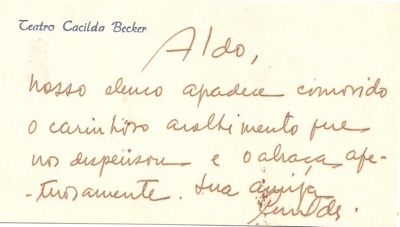 Teatro Cacilda Becker
Aldo,
nosso elenco agradece comovido
o carinhoso acolhimento que
nos dispensou e o abraça, afe-
-tuosamente. Sua amiga